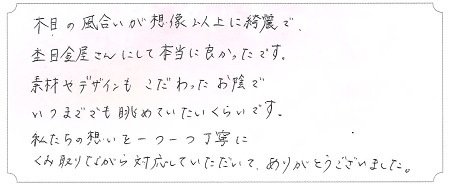 木目の風合いが想像以上に綺麗で、
杢目金屋さんにして本当に良かったです。
素材やデザインも こだわったお陰で
いつまででも眺めていたいくらいです。
私たちの想いを一つ一つ丁寧に
くみ取りながら対応していただいて、ありがとうございました。